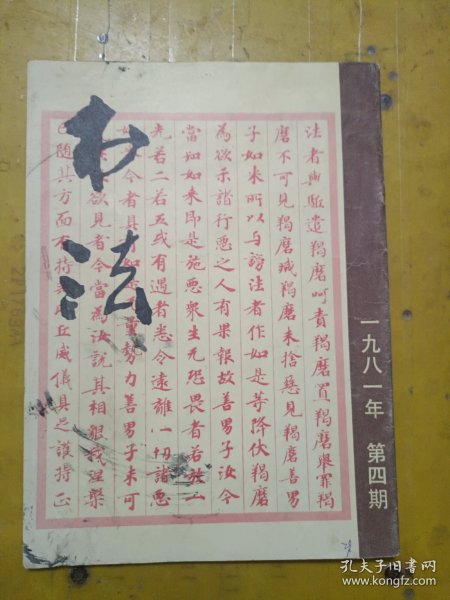 书法
法者與驅遣羯磨呵責羯磨置羯磨舉罪羯
磨不可見羯磨滅羯磨未捨惡見羯磨善男
子如來所以与謗法者作如是等降伏羯磨
為欲示諸行惡之人有果報故善男子汝今
當知如來即是施惡衆生无恐畏者若放一
光若二若五或有遇者悉令遠離一切諸惡
今者具如量勢力善男子未可
欲見者今當為汝說其相貌我涅槃
已随其方面有持丘威儀具足護持正
一九八一年 第四期
孔夫子旧书网
www.kongfz.com